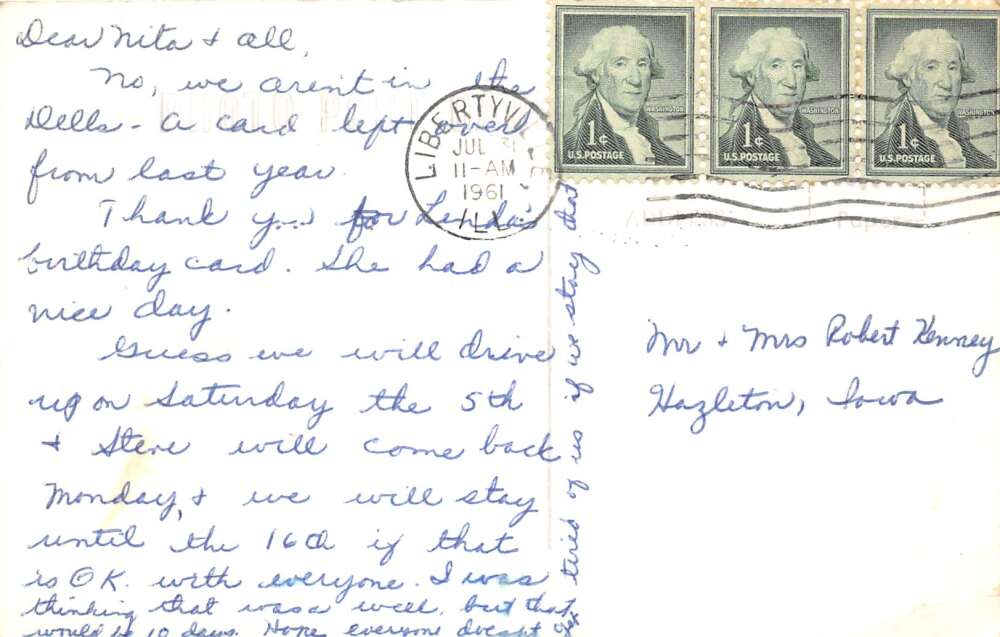 Dear Nita + all,
No, we aren't in the
Dells - a card left over
from last year.
Thank you for Linda's
birthday card. She had a
nice day.
Guess we will drive
up on Saturday the 5th
+ Steve will come back
Monday, + we will stay
until the 16th if that
is OK. with everyone. I was
thinking that was a week, but that
would be 10 days. Hope everyone doesn't
get
tired of us if we stay that
LIBERTYVILLE
JUL 31
11-AM
1961
ILL.
1¢
U.S. POSTAGE
WASHINGTON
1¢
U.S. POSTAGE
WASHINGTON
1¢
U.S. POSTAGE
WASHINGTON
Mr + Mrs Robert Kenney
Hazleton, Iowa